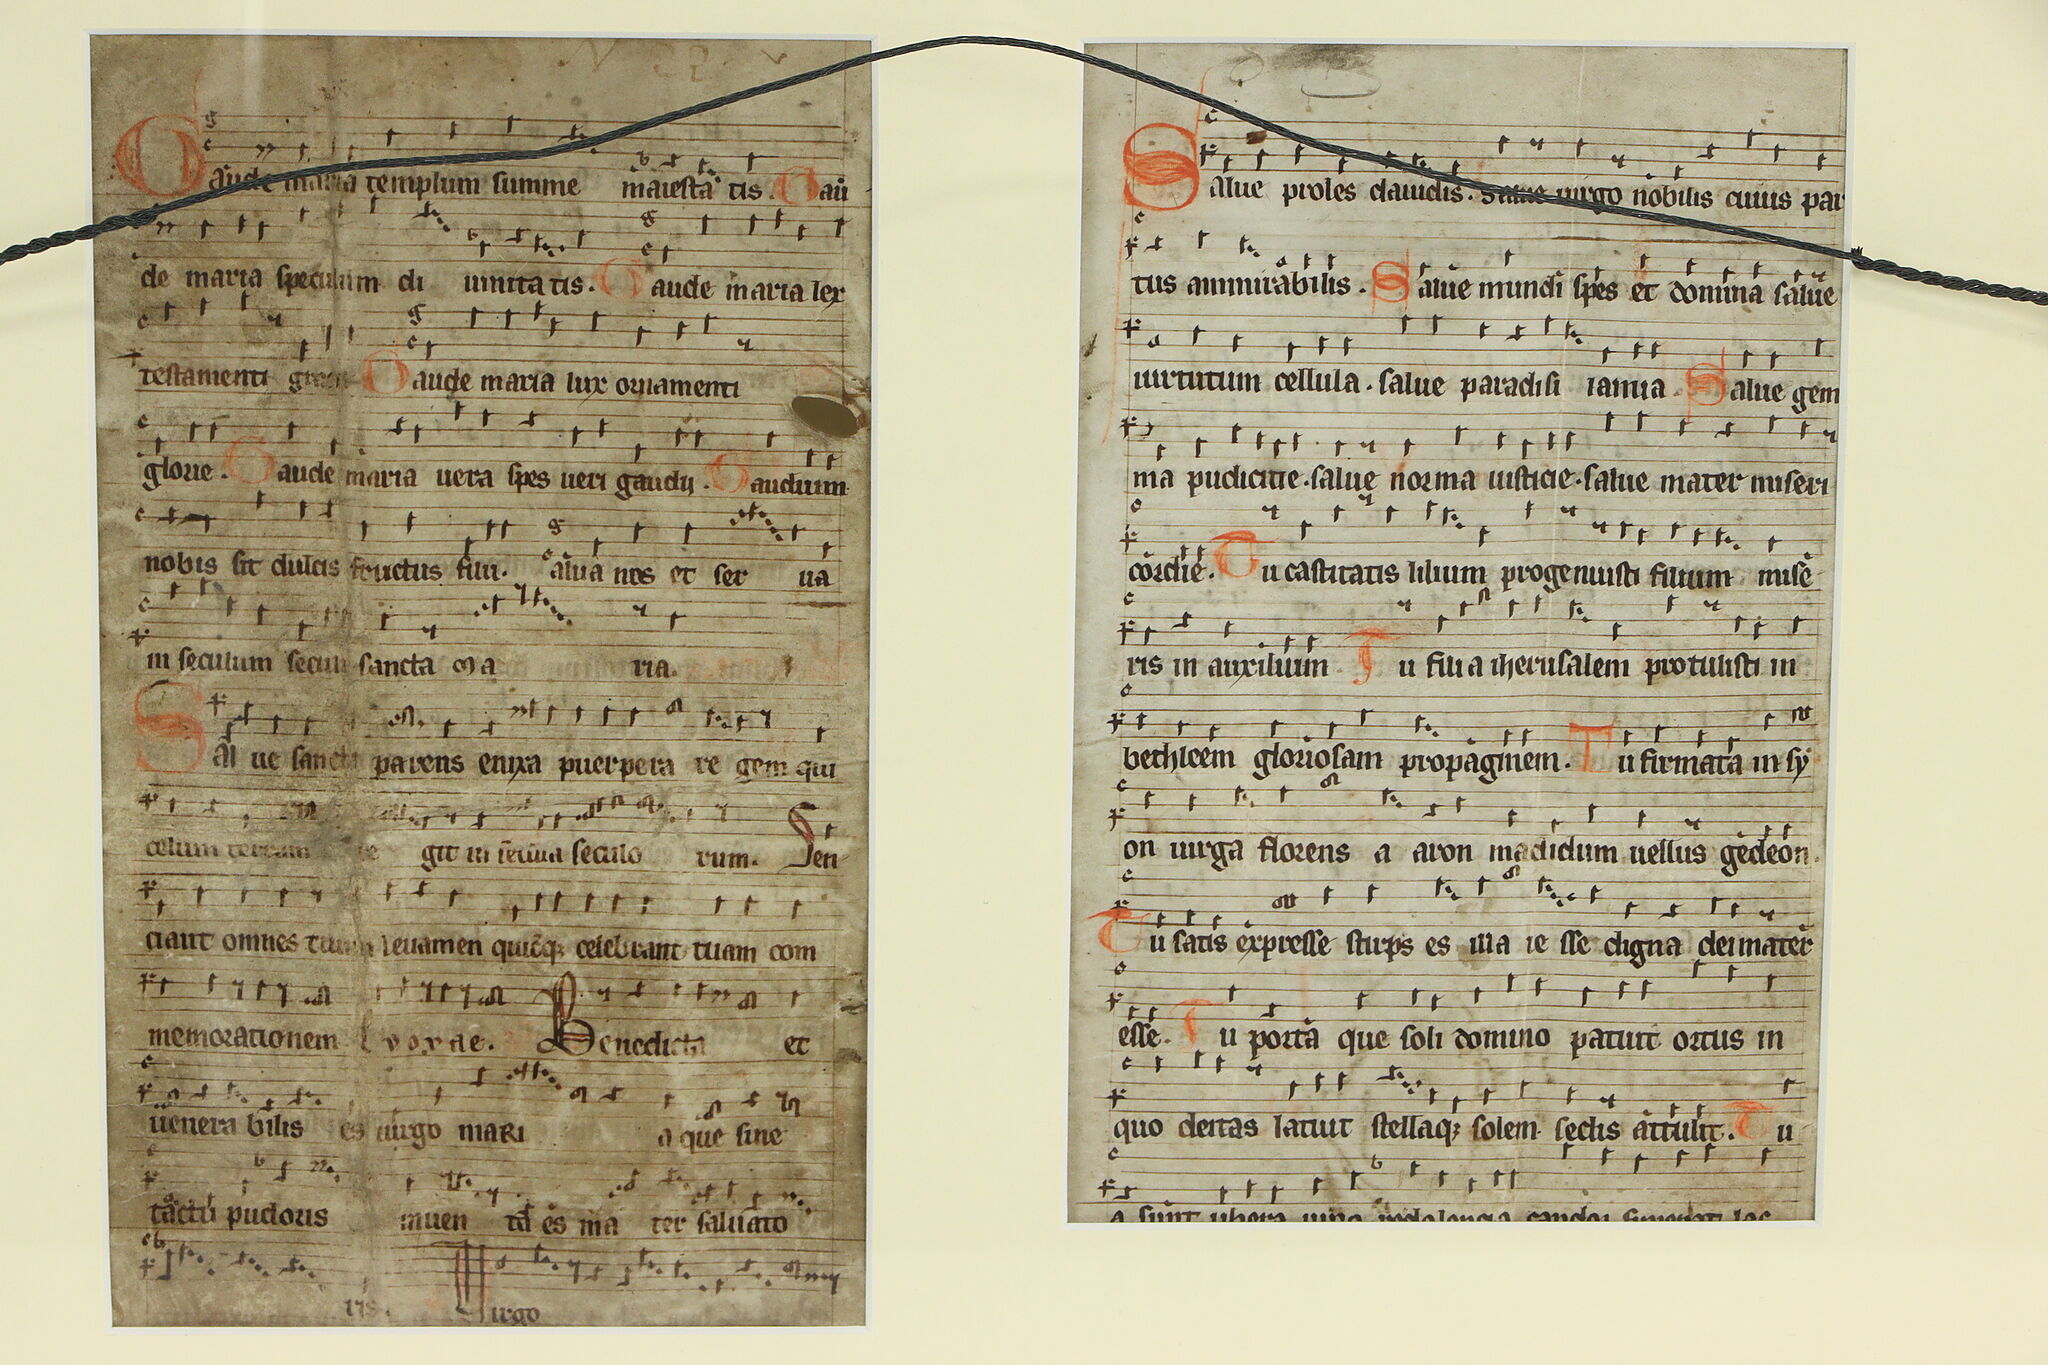 Gaude maria templum summe maiesta tis. Gau
de maria speculum di uinita tis. Gaude maria lex
testamenti Gaude maria lux ornamenti
glorie. Gaude maria uera spes ueri gaudij. Gaudium
nobis sit dulcis fructus filii. salua nos et ser ua
in seculum seculi sancta Ma ria.
Sal ue sancta parens enixa puerpera re gem qui
celum terram re git in secula seculo rum. Sen
ciant omnes tuum leuamen quicūqꝫ celebrant tuam com
memorationem Evovae. Benedicta et
uenera bilis es uirgo mari a que sine
tactu pudoris inuen ta es ma ter saluato
ris. Virgo
Salue proles dauidis. Salue uirgo nobilis cuius par
tus ammirabilis. Salue mundi spes et domina salue
uirtutum cellula. salue paradisi ianua. Salue gem
ma pudicitie. salue norma iusticie. salue mater miseri
cordie. Tu castitatis lilium progenuisti filium mise
ris in auxilium. Tu filia iherusalem protulisti in
bethleem gloriosam propaginem. Tu firmata in sy
on uirga florens a aron madidum uellus gedeon.
Tu satis expresse stirps es illa ie sse digna dei mater
esse. Tu porta que soli domino patuit ortus in
quo deitas latuit stellaqꝫ solem seclis attulit. Tu
a sunt ubera uino redolencia candor superat lac